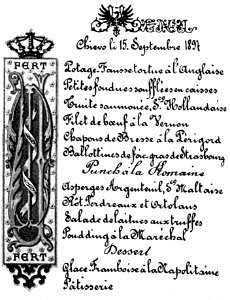 MENU
Chievo li 15. Septembre 1897
FERT
Potage Fausse tortue à l'Anglaise
Petites fondues soufflées en caisses
Truite saumonée, S.ce Hollandaise
Filet de bœuf à la Vernon
Chapons de Bresse à la Périgord
Ballottines de foie gras de Strasbourg
Punch à la Romaine
Asperges Argenteuil, S.ce Maltaise
Rôt. Perdreaux et Ortolans
Salade de laitues aux truffes
Poudding à la Maréchal
Dessert
FERT
Glace Framboise à la Napolitaine
Pâtisserie